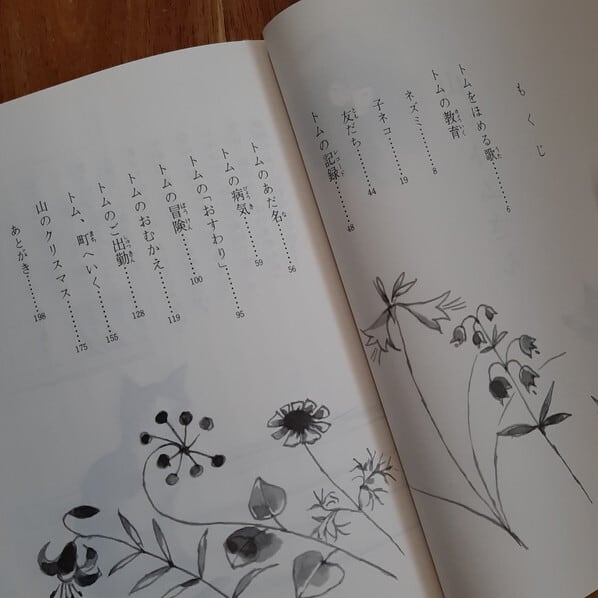 もくじ
トムをほめる歌……6
トムの教育
ネズミ……8
子ネコ……19
友だち……44
トムの記録……48
トムのあだ名……56
トムの病気……59
トムの「おすわり」……95
トムの冒険……100
トムのおむかえ……119
トムのご出勤……128
トム、町へいく……155
山のクリスマス……175
あとがき……198